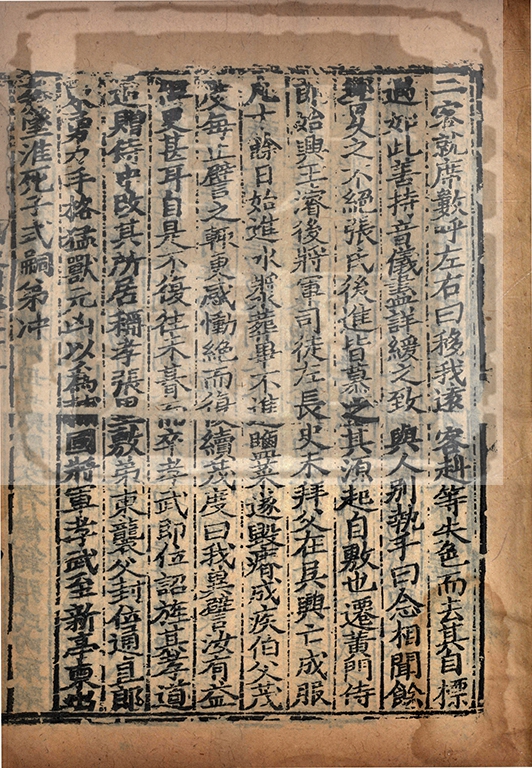 二客就席敷呼左右曰移我遠客赳等失色而去其自標
遇如此善持音儀盡詳緩之致與人別執手曰念相聞餘
響久之不絕張氏後進皆慕之其源起自敷也遷黃門侍
郎始興王濬後將軍司徒左長史未拜父在吳興亡成服
凡十餘日始進水漿葬畢不進鹽菜遂毀瘠成疾伯父茂
度每止譬之輒更感慟絕而復續茂度曰我冀譬汝有益
但更甚耳自是不復往未朞而卒孝武即位詔旌其孝道
追贈侍中改其所居稱孝張里敷弟東襲父封位通直郎
東勇力手格猛獸元凶以為輔國將軍孝武至新亭東出
奔墜淮死子式嗣弟沖